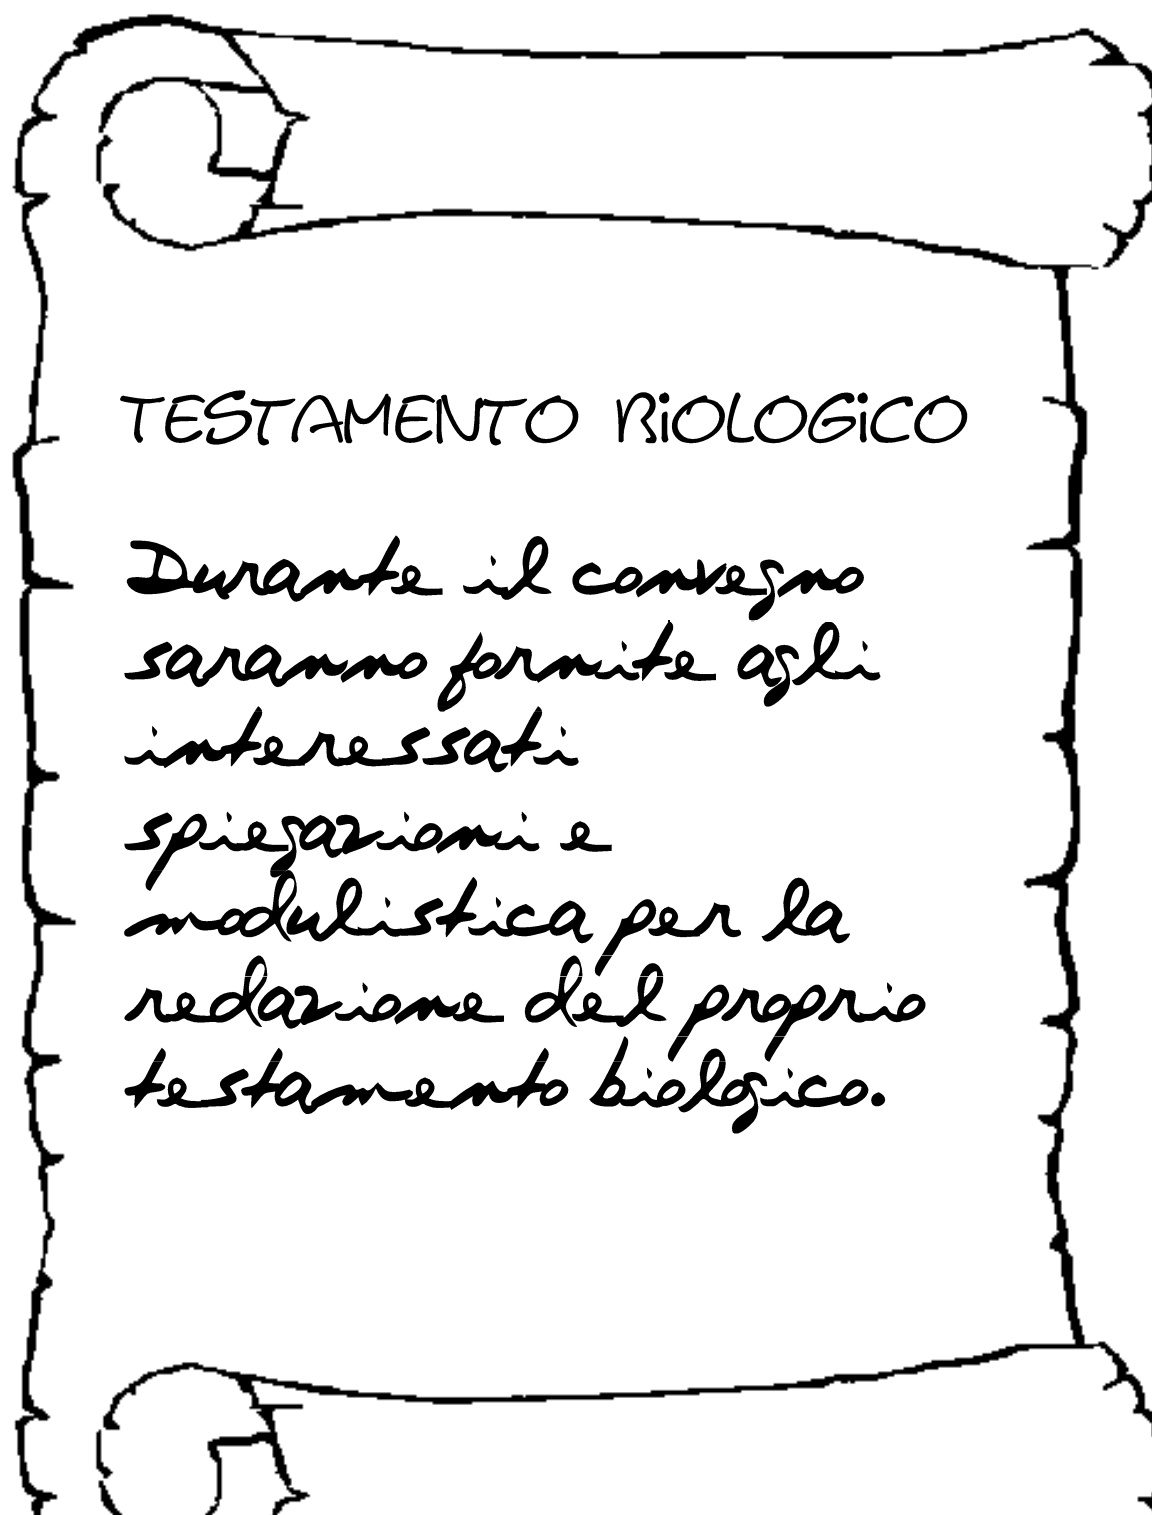 TESTAMENTO BiOLOGiCO
Durante il convegno
saranno fornite agli
interessati
spiegazioni e
modulistica per la
redazione del proprio
testamento biologico.